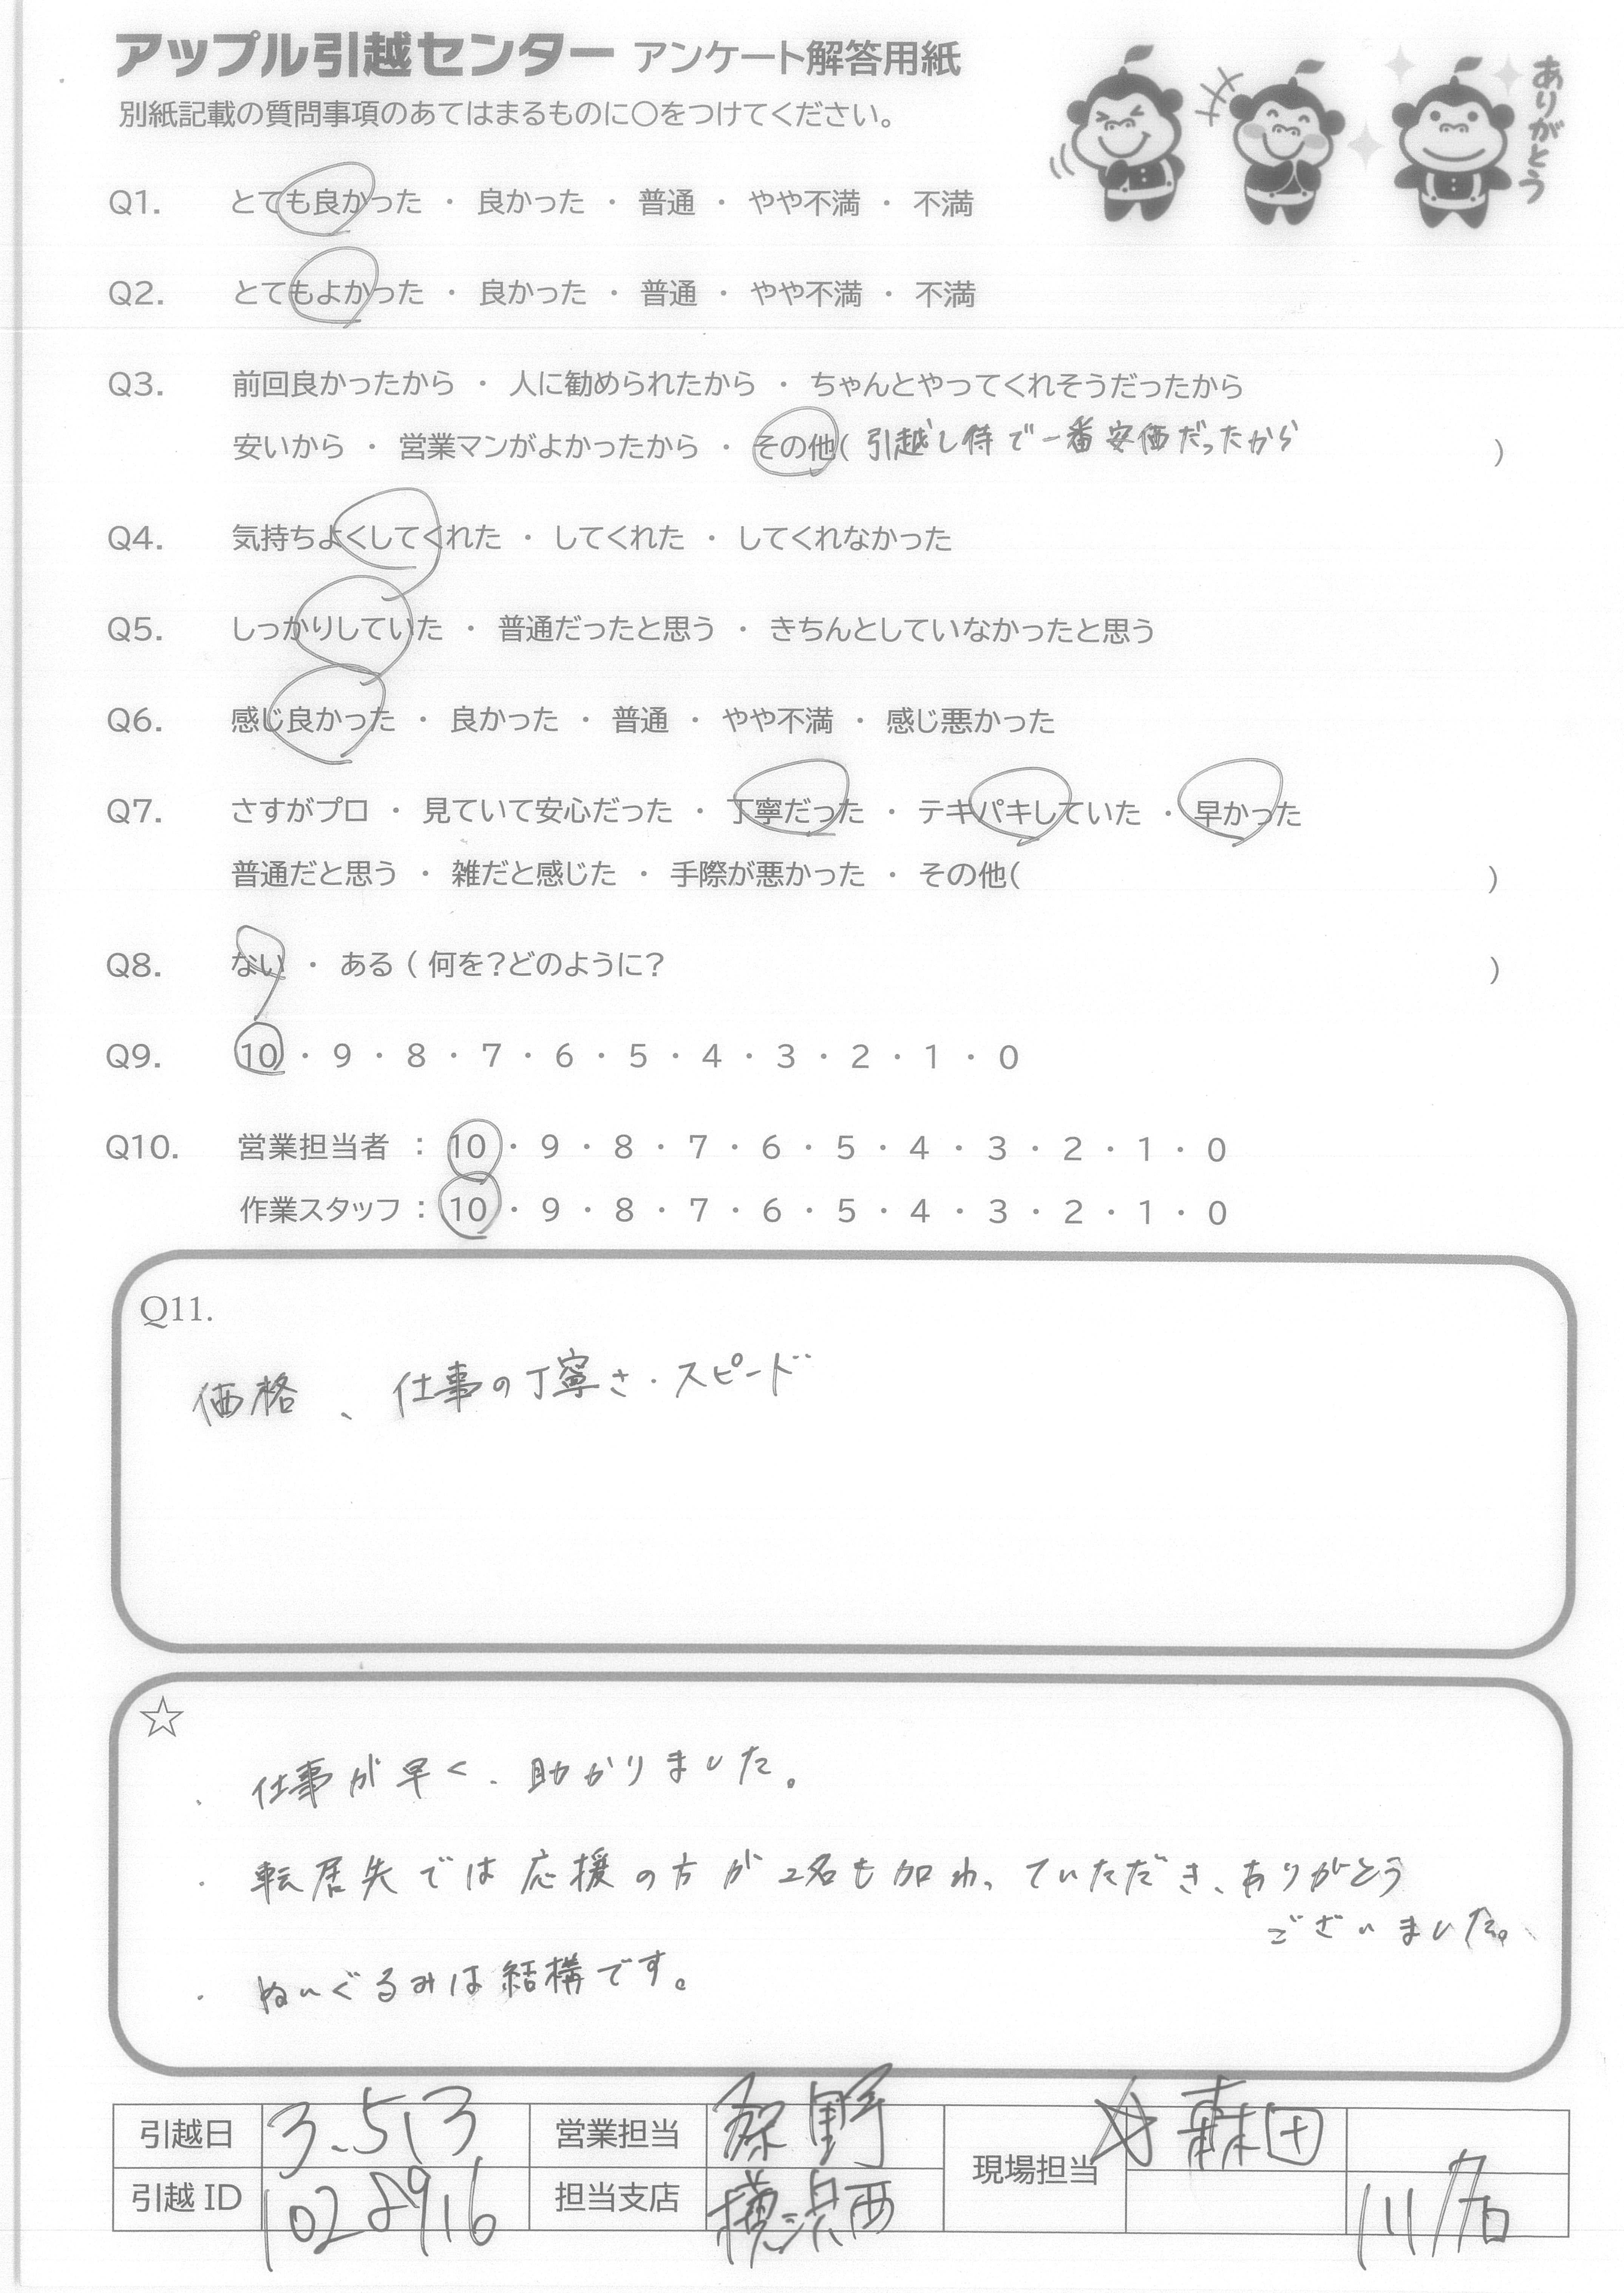 アップル引越センター アンケート解答用紙
ありがとう
別紙記載の質問事項のあてはまるものに〇をつけてください。
Q1. とても良かった ・ 良かった ・ 普通 ・ やや不満 ・ 不満
Q2. とてもよかった ・ 良かった ・ 普通 ・ やや不満 ・ 不満
Q3. 前回良かったから ・ 人に勧められたから ・ ちゃんとやってくれそうだったから
安いから ・ 営業マンがよかったから ・ その他( 引越し侍で一番安価だったから )
Q4. 気持ちよくしてくれた ・ してくれた ・ してくれなかった
Q5. しっかりしていた ・ 普通だったと思う ・ きちんとしていなかったと思う
Q6. 感じ良かった ・ 良かった ・ 普通 ・ やや不満 ・ 感じ悪かった
Q7. さすがプロ ・ 見ていて安心だった ・ 丁寧だった ・ テキパキしていた ・ 早かった
普通だと思う ・ 雑だと感じた ・ 手際が悪かった ・ その他( )
Q8. ない ・ ある ( 何を?どのように? )
Q9. 10 ・ 9 ・ 8 ・ 7 ・ 6 ・ 5 ・ 4 ・ 3 ・ 2 ・ 1 ・ 0
Q10. 営業担当者 : 10 ・ 9 ・ 8 ・ 7 ・ 6 ・ 5 ・ 4 ・ 3 ・ 2 ・ 1 ・ 0
作業スタッフ : 10 ・ 9 ・ 8 ・ 7 ・ 6 ・ 5 ・ 4 ・ 3 ・ 2 ・ 1 ・ 0
Q11.
価格、仕事の丁寧さ・スピード
☆
・仕事が早く、助かりました。
・転居先では応援の方が2名も加わっていただき、ありがとう
ございました。
・ぬいぐるみは結構です。
引越日 3.5.13 営業担当 現場担当 ☆森田
引越 ID 1028916 担当支店 横浜西